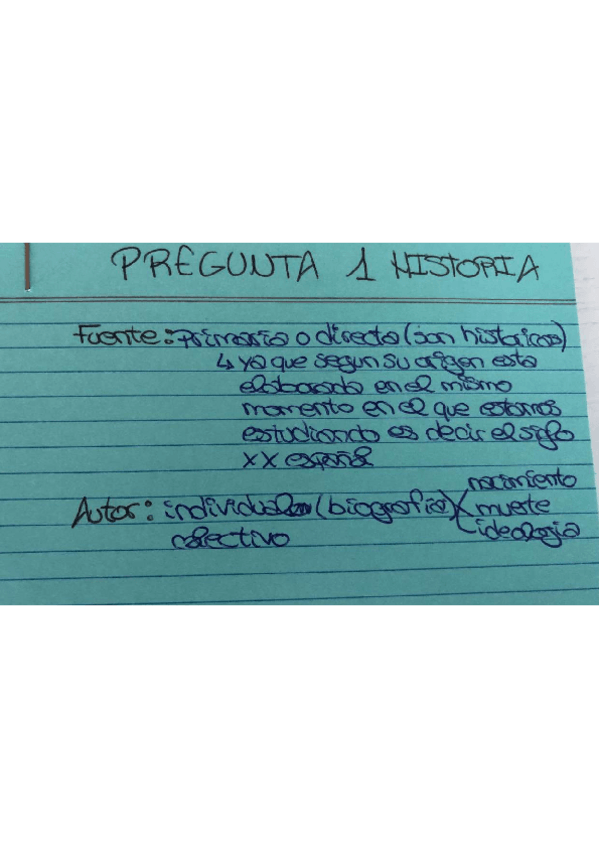 PREGUNTA 1 HISTORIA
Fuente: Primaria o directa (son historicas)
↳ ya que segun su origen esta
elaborada en el mismo
momento en el que estamos
estudiando es decir el siglo
XX español
Autor: individual (biografia) nacimiento
muerte
ideologia
colectivo